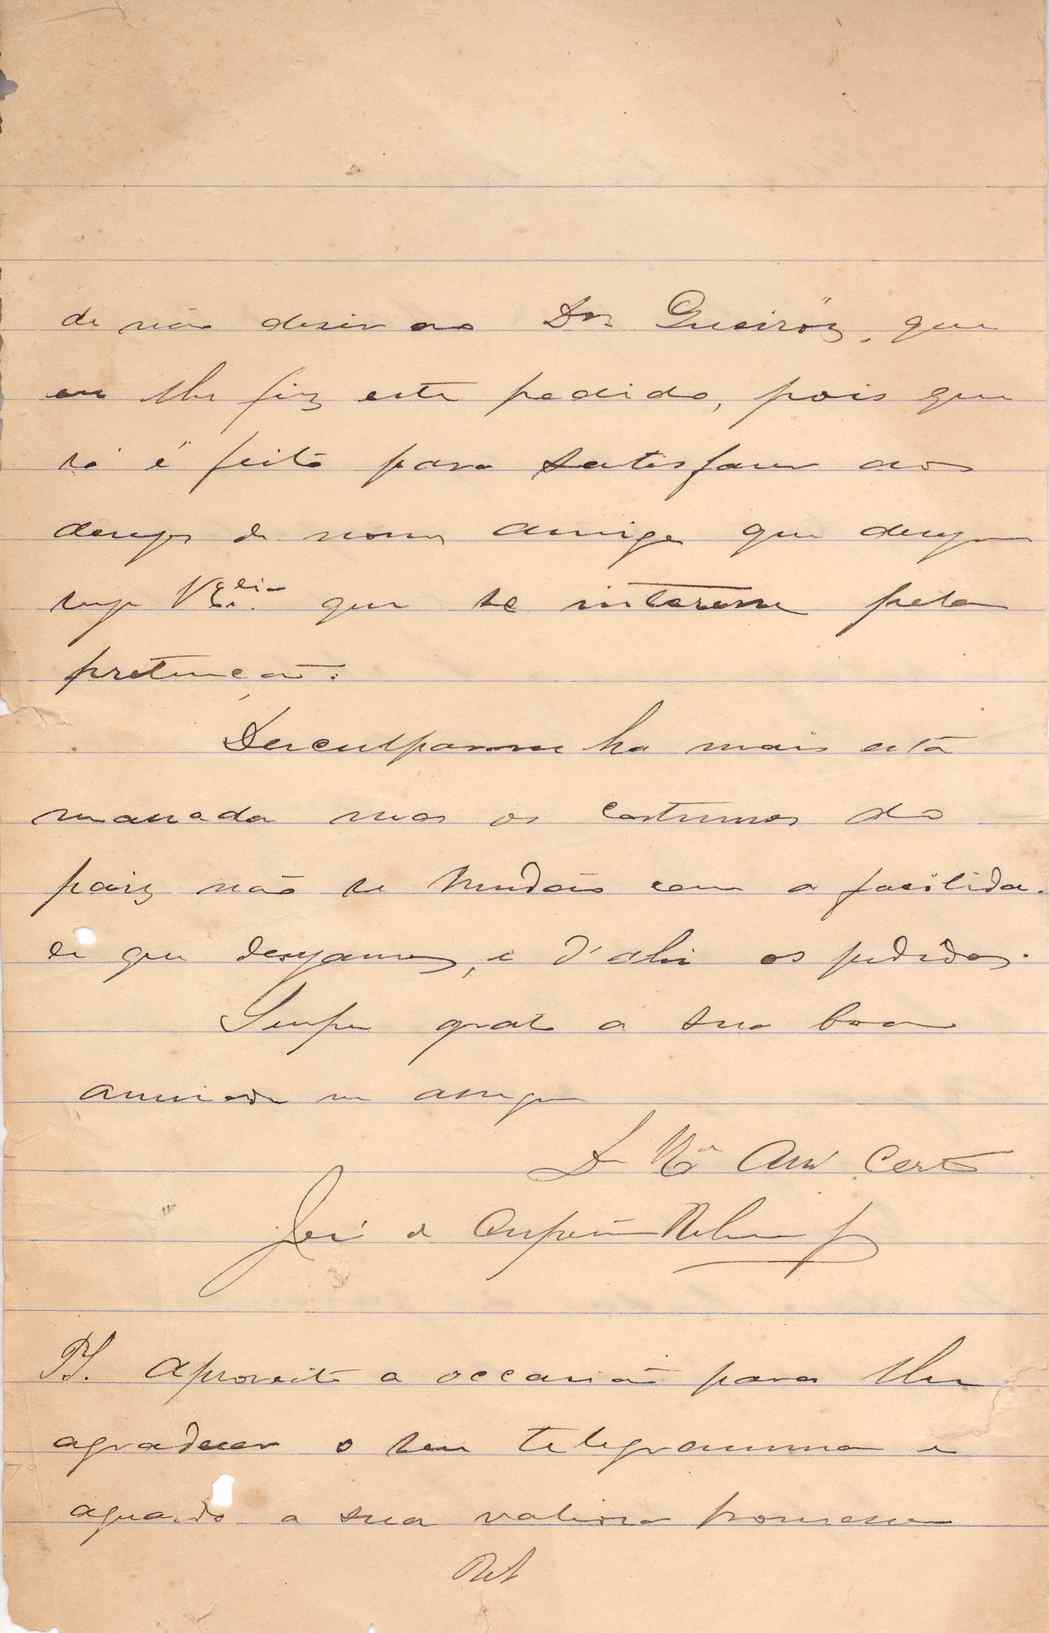 de não dizer ao Dor Queiróz, que
eu lhe fiz este pedido, pois que
só é feito para satisfazer aos
desejos de nosso amigo que deseja
seja V Exia que se interesse pela
pretenção.
Desculpa-me ha mais esta
massada mas os costumes do
paiz não se mudão com a facilida-
de que desejamos, e d'ahi os pedidos.
Sempre grato a sua boa
amisade me assigno
De V. Ex. Amº Certo
José de
PS. Aproveito a occasião para lhe
agradecer o seu telegramma e
aguardo a sua valiosa promessa